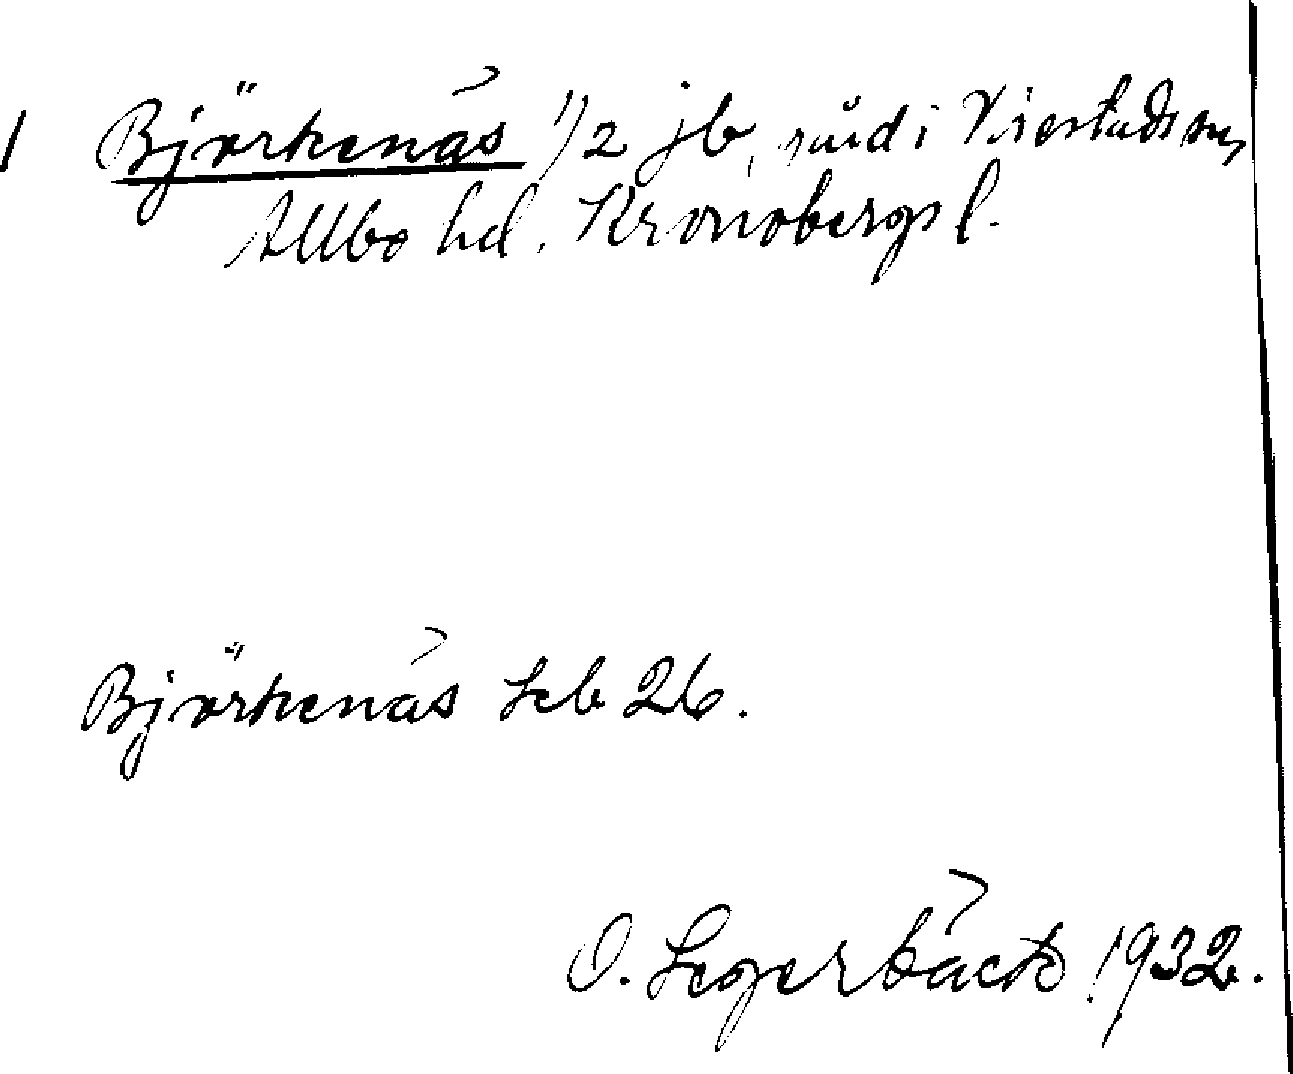 1 Björkenäs 1/2 jb, i Virestads sn,
Allbo hd. Kronobergs l.
Björkenäs Leb 26.
O. Legerbäck 1932.